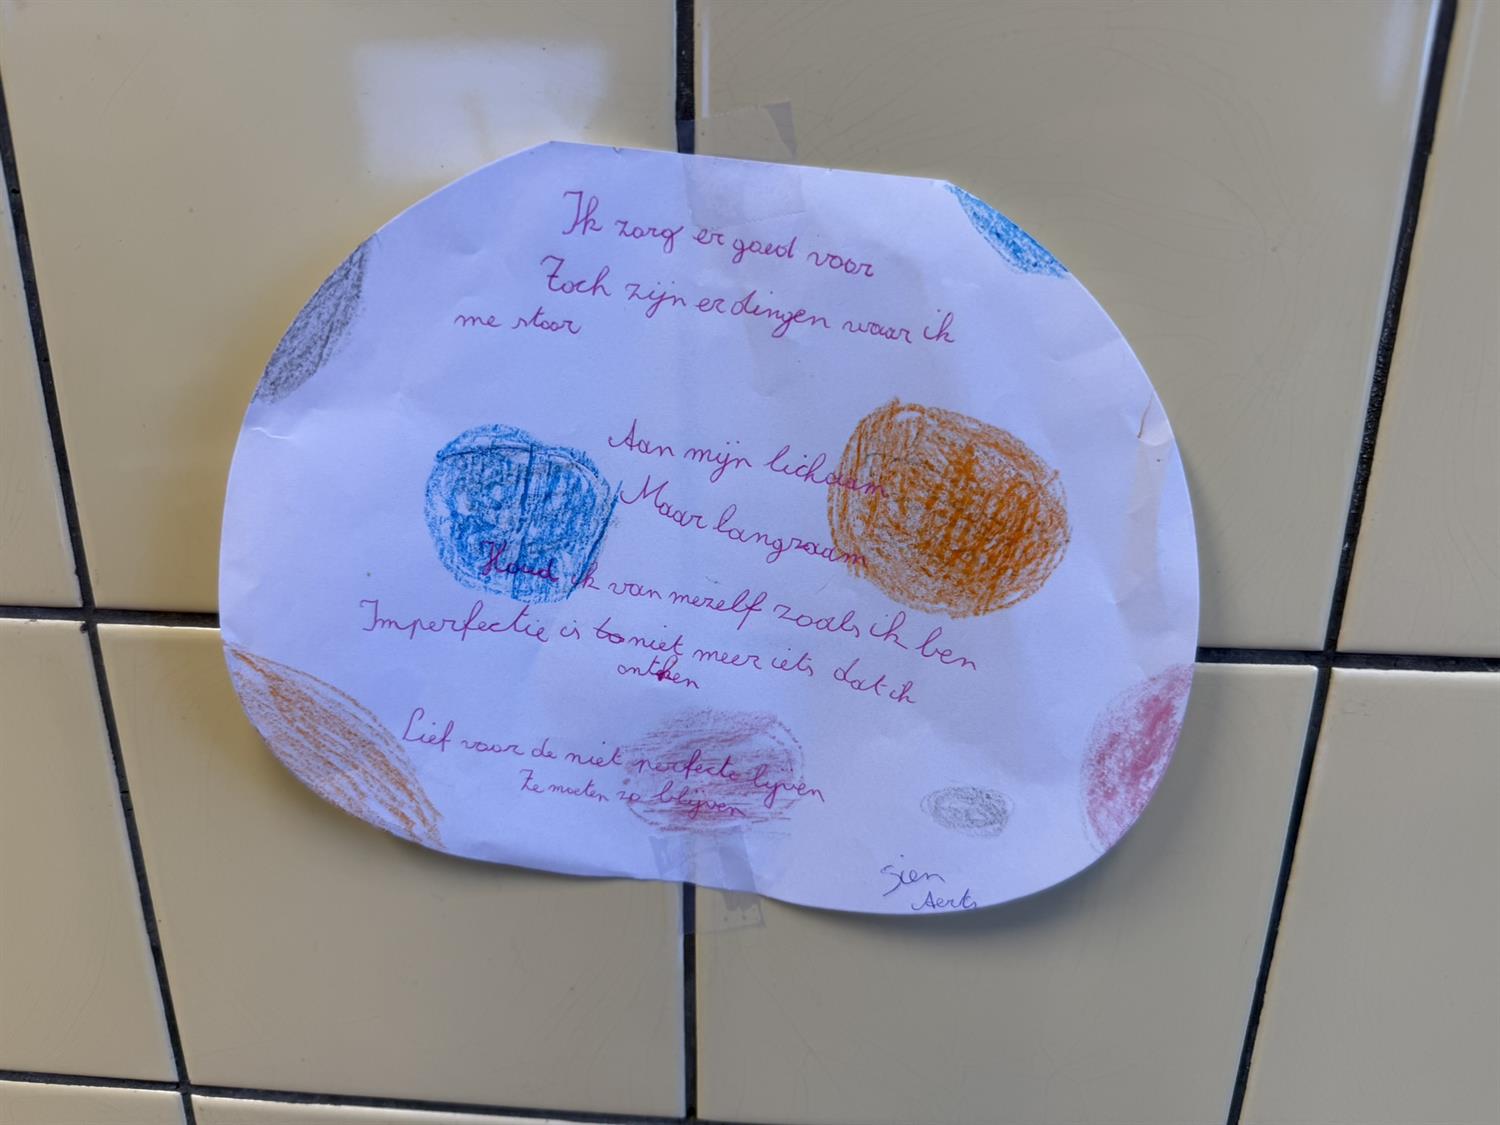 Ik zorg er goed voor
Toch zijn er dingen waar ik
me stoor
Aan mijn lichaam
Maar langzaam
Houd ik van mezelf zoals ik ben
Imperfectie is niet meer iets dat ik
ontken
Lief voor de niet perfecte lijven
Ze moeten zo blijven
Sien
Aerts